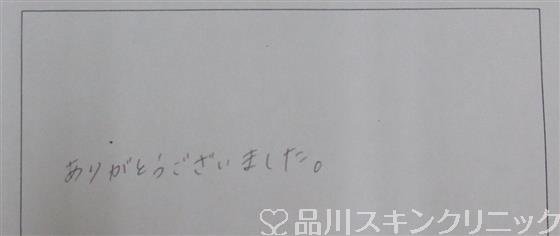 ありがとうございました。
品川スキンクリニック